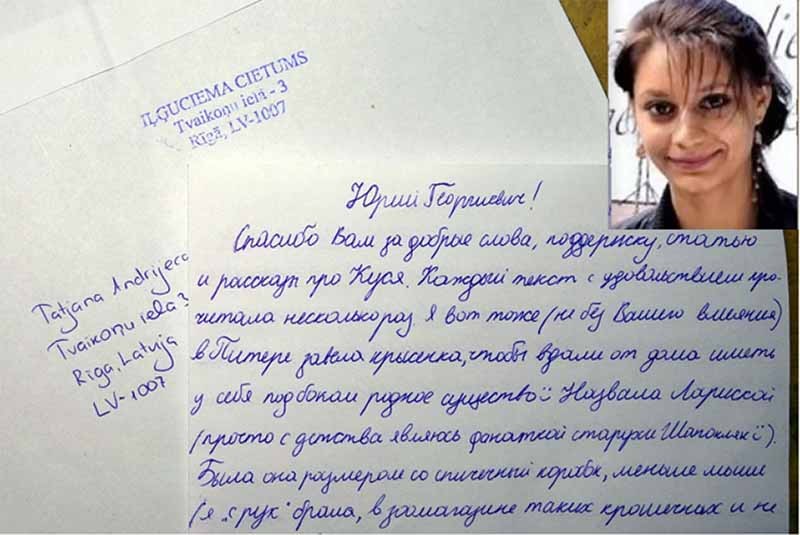 IĻĢUCIEMA CIETUMS
Tvaikoņu ielā - 3
Rīgā, LV-1007
Tatjana Andrijeca
Tvaikoņu iela 3
Rīga, Latvija
LV-1007
Юрий Георгиевич!
Спасибо Вам за добрые слова, поддержку, статью
и рассказ про Куся. Каждый текст с удовольствием про-
читала несколько раз. Я вот тоже (не без Вашего влияния)
в Питере завела крысенка, чтобы вдали от дома иметь
у себя под боком родное существо Назвала Лариской
(просто с детства являюсь фанаткой старухи Шапокляк).
Была она размером со спичечный коробк, меньше мыши
(я „с рук" брала, в зоомагазине таких крошечных и не